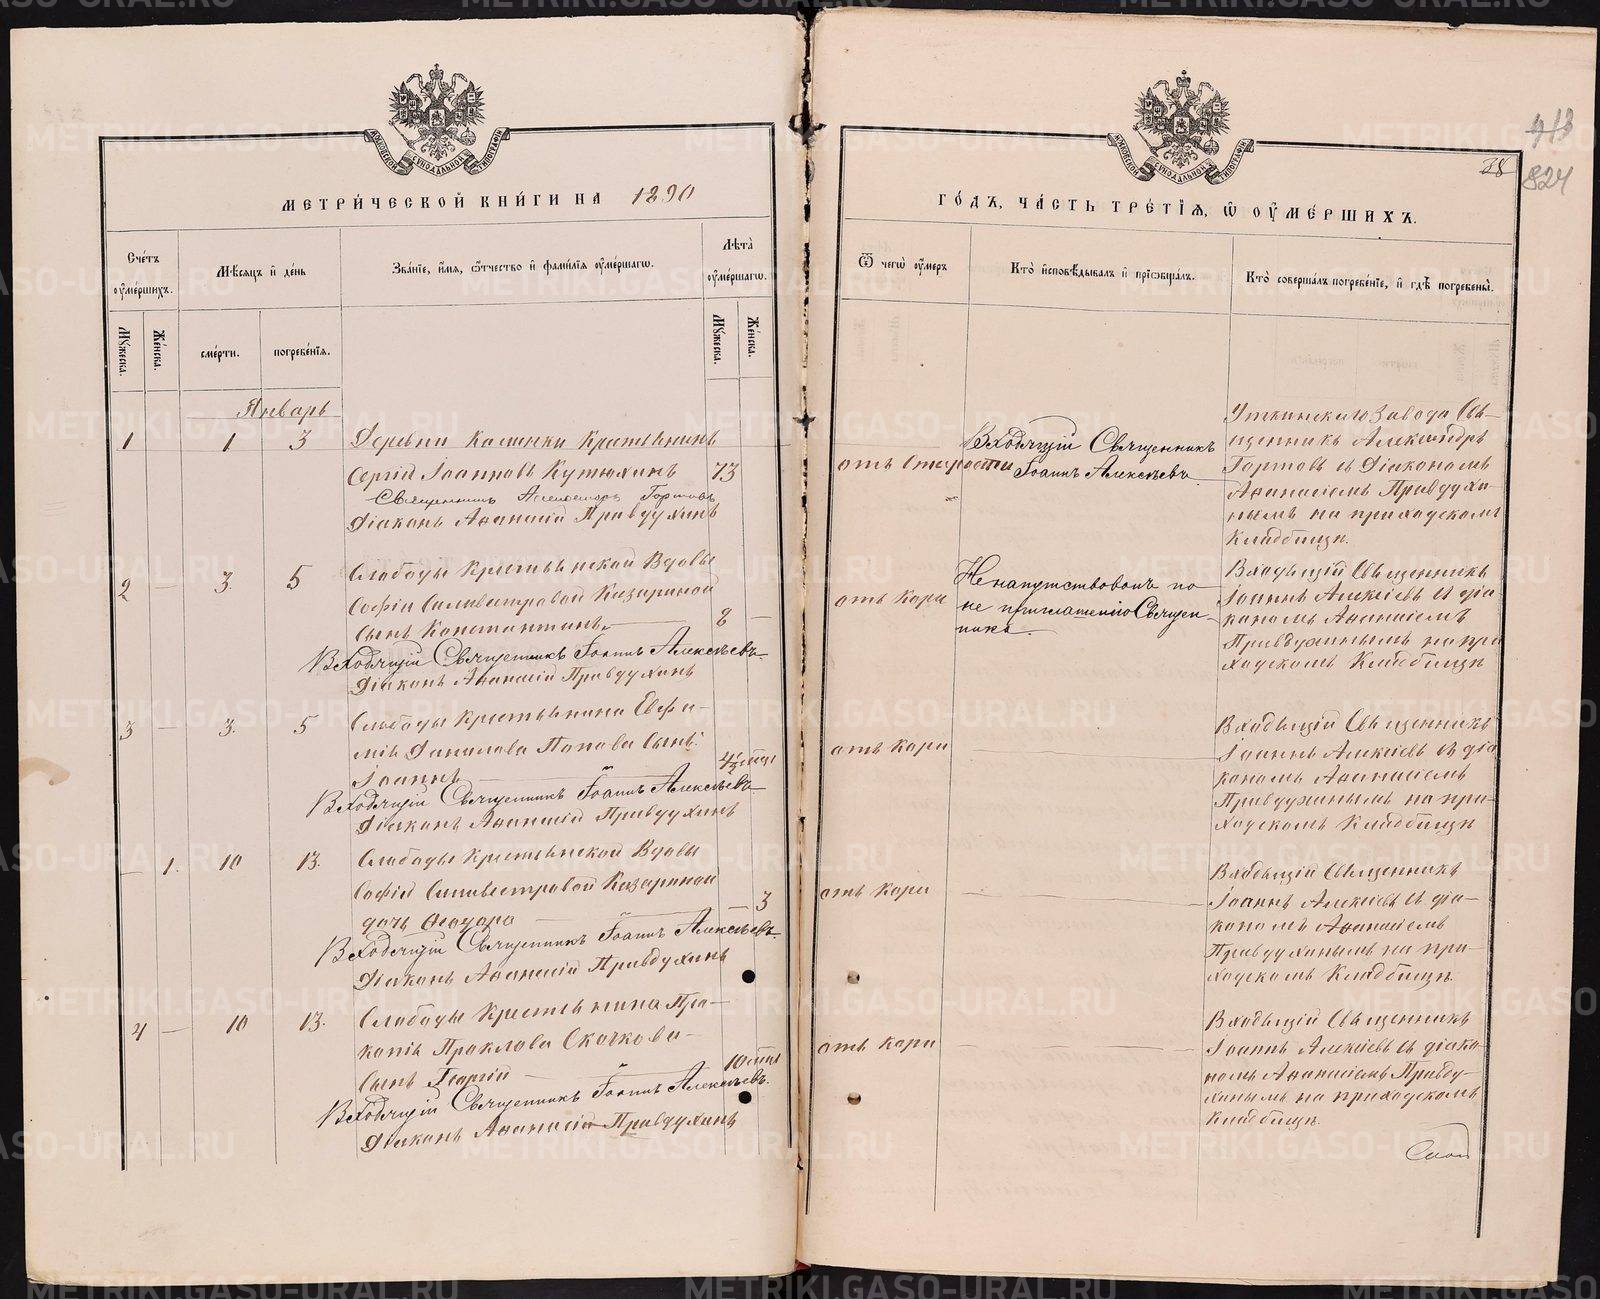 МЕТРИ́ЧЕСКОЙ КНИ́ГИ НА 1890
Счетъ оумершихъ.
Мѣсяцъ и день
Званіе, имя, ѿчество и фамилія оумершагѡ.
Лѣта оумершагѡ.
Мужеска.
Женска.
смерти.
погребенія.
Мужеска.
Женска.
Январь
1 1 3 Деревни Калинки Крестьянинъ
Сергій Іоанновъ Кутюхинъ 73
Священникъ Александръ Гортовъ
Діаконъ Аѳанасій Правдухинъ
2 — 3. 5 Слободы Крестьянской Вдовы
Софіи Сильвестровой Казариной
сынъ Константинъ. 8 —
Входящій Священникъ Іоаннъ Алексѣевъ.
Діаконъ Аѳанасій Правдухинъ
3 — 3. 5 Слободы Крестьянина Евфи-
мія Данилова Попова сынъ
Іоаннъ 4½
Входящій Священникъ Іоаннъ Алексѣевъ
Діаконъ Аѳанасій Правдухинъ
— 1. 10 13. Слободы Крестьянской Вдовы
Софіи Сильвестровой Казариной
дочь Ѳеодора — 3
Входящій Священникъ Іоаннъ Алексѣевъ.
Діаконъ Аѳанасій Правдухинъ
4 — 10 13. Слободы Крестьянина Про-
копія Проклова Скочкова
сынъ Георгій 10
Входящій Священникъ Іоаннъ Алексѣевъ.
Діаконъ Аѳанасій Правдухинъ
28
824
ГО́ДЪ, ЧА́СТЬ ТРЕ́ТІѦ, Ѡ ОУМЕ́РШИХЪ.
Ѿ чегѡ оумеръ
Кто исповѣдывалъ и пріобщалъ.
Кто совершалъ погребеніе, и гдѣ погребены.
отъ Старости
Входящій Священникъ
Іоаннъ Алексѣевъ
Уткинского Завода Свя-
щенникъ Александръ
Гортовъ съ Діакономъ
Аѳанасіемъ Правдухи-
нымъ на приходскомъ
Кладбищѣ.
отъ Кори
Не напутствованъ по
не приглашенію Священ-
ника.
Входящій Священникъ
Іоаннъ Алексѣевъ съ діа-
кономъ Аѳанасіемъ
Правдухинымъ на при
ходскомъ Кладбищѣ
отъ Кори
Входящій Священникъ
Іоаннъ Алексѣевъ съ діа
кономъ Аѳанасіемъ
Правдухинымъ на при-
ходскомъ Кладбищѣ
отъ Кори
Входящій Священникъ
Іоаннъ Алексѣевъ съ діа-
кономъ Аѳанасіемъ
Правдухинымъ на при-
ходскомъ Кладбищѣ.
отъ Кори
Входящій Священникъ
Іоаннъ Алексѣевъ съ діако-
номъ Аѳанасіемъ Правду-
хинымъ на приходскомъ
Кладбищѣ.
METRIKI.GASO-URAL.RU